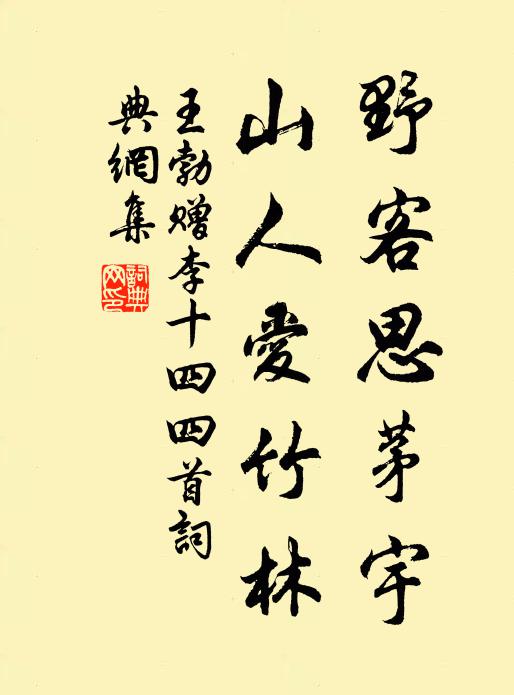 野客思茅宇
山人愛竹林
王勃贈李十四四首詞
典網集
詞典网印